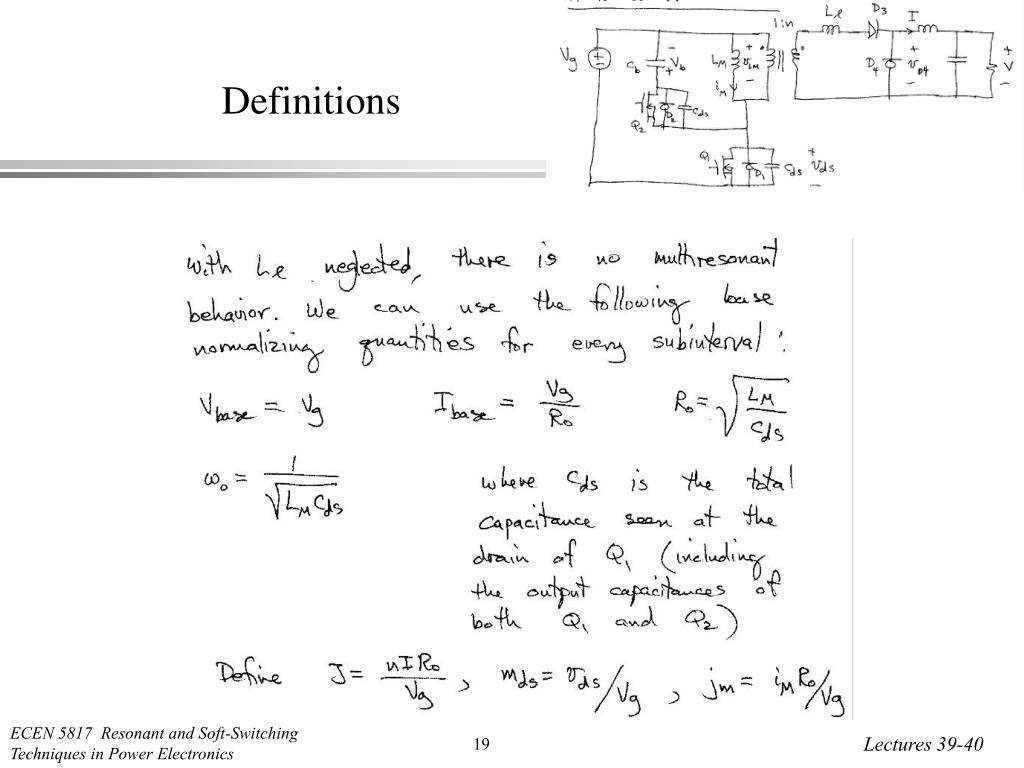 Definitions
Vg
Cb
Vb
LM
vLM
iM
Q2
D2
Cds
Q1
D1
Cds
vds
1:n
Le
D3
I
D4
vD4
V
with Le neglected, there is no multiresonant
behavior. We can use the following base
normalizing quantities for every subinterval:
Vbase = Vg Ibase = Vg/Ro Ro = √(LM/Cds)
ω0 = 1/√(LM Cds)
where Cds is the total
capacitance seen at the
drain of Q1 (including
the output capacitances of
both Q1 and Q2)
Define J = nIRo/Vg , mds = vds/Vg , jm = iM Ro/Vg
ECEN 5817 Resonant and Soft-Switching
Techniques in Power Electronics
19
Lectures 39-40